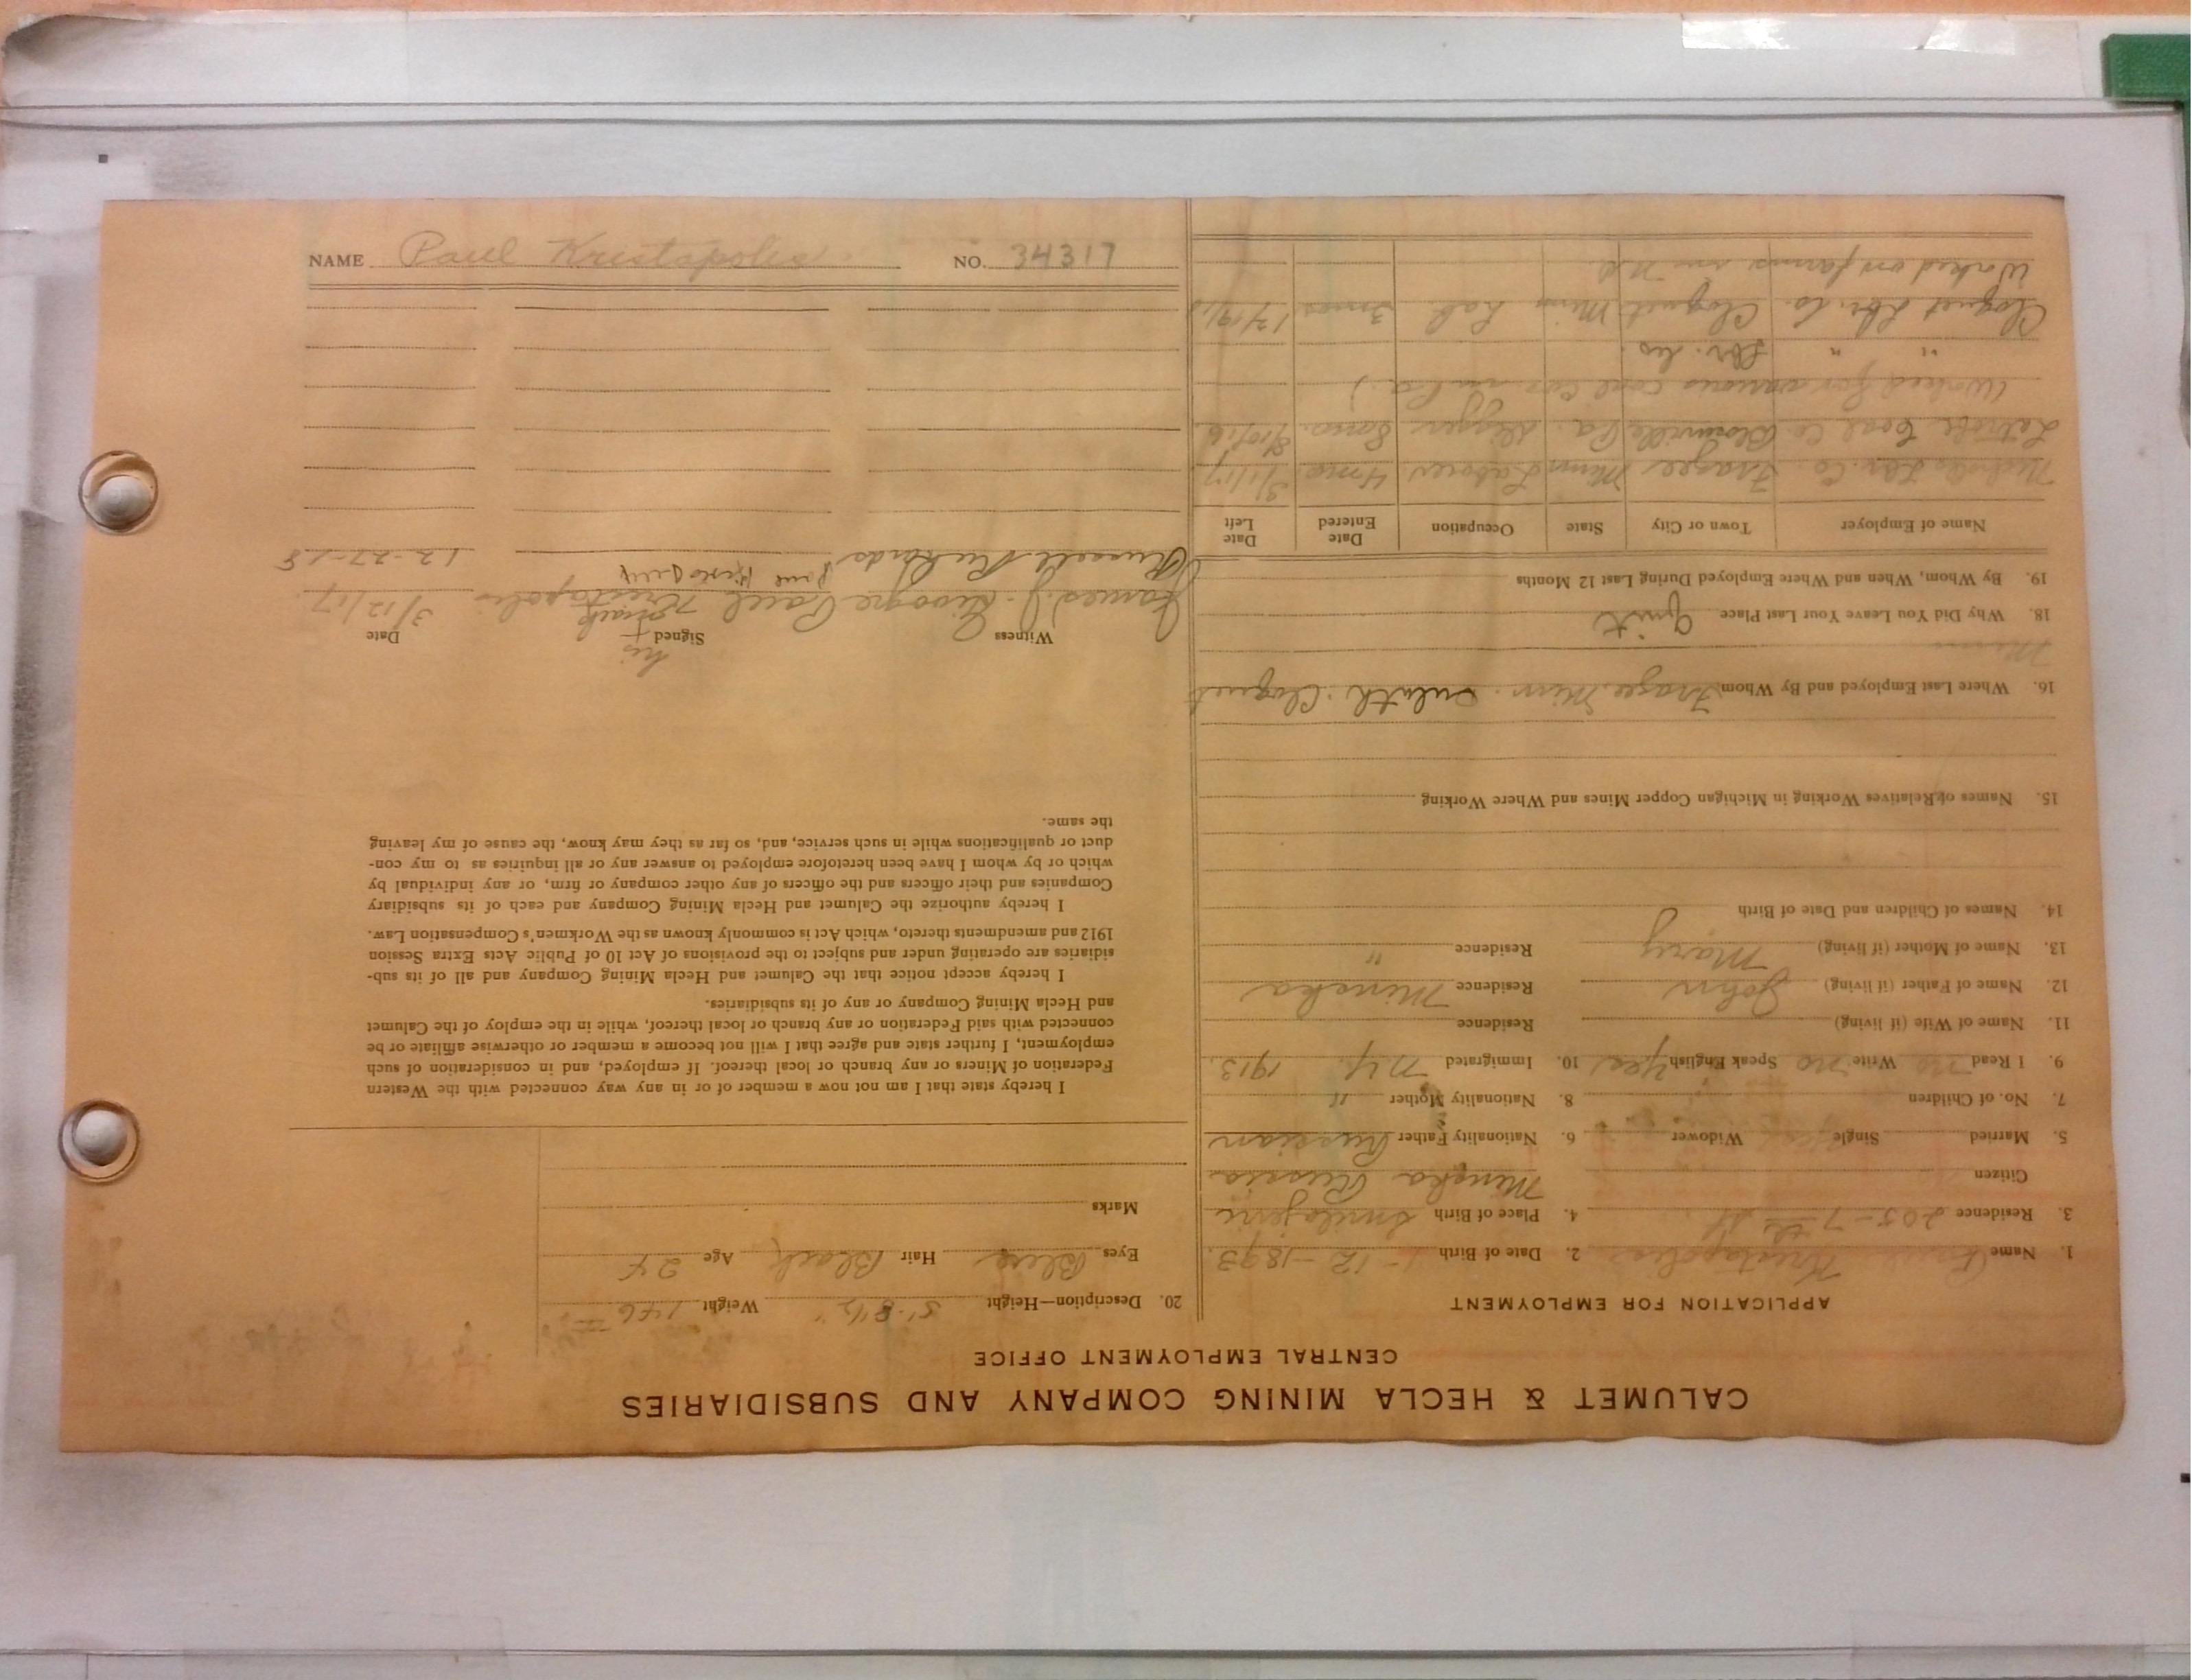 NAME Paul Kristapolis NO. 34317
CALUMET & HECLA MINING COMPANY AND SUBSIDIARIES
CENTRAL EMPLOYMENT OFFICE
APPLICATION FOR EMPLOYMENT
1. Name Paul Kristapolis 2. Date of Birth 12-1893
3. Residence 205-7th St 4. Place of Birth
Citizen Minska Russia
5. Married Single Widower 6. Nationality Father Russian
7. No. of Children 8. Nationality Mother "
9. I Read no Write no Speak English yes 10. Immigrated N.Y. 1913.
11. Name of Wife (if living) Residence
12. Name of Father (if living) John Residence Minska
13. Name of Mother (if living) Mary Residence "
14. Names of Children and Date of Birth
15. Names of Relatives Working in Michigan Copper Mines and Where Working
16. Where Last Employed and By Whom Frazee Minn. Duluth. Cloquet
Minn
18. Why Did You Leave Your Last Place Quit
19. By Whom, When and Where Employed During Last 12 Months
Name of Employer Town or City State Occupation Date Entered Date Left
Nichols Lbr. Co. Frazee Minn Laborer 4 mos 3/1/17
Latrobe Coal Co Pa. 8 mos. 8/10/16
(Worked for various coal cos. in Pa.)
" " Lbr. Cos.
Cloquet Lbr. Co. Cloquet Minn Lab. 3 mos 12/19/18
Worked on farms in N.D.
20. Description—Height 5'-8½" Weight 146
Eyes Blue Hair Black Age 24
Marks
I hereby state that I am not now a member of or in any way connected with the Western
Federation of Miners or any branch or local thereof. If employed, and in consideration of such
employment, I further state and agree that I will not become a member or otherwise affiliate or be
connected with said Federation or any branch or local thereof, while in the employ of the Calumet
and Hecla Mining Company or any of its subsidiaries.
I hereby accept notice that the Calumet and Hecla Mining Company and all of its sub-
sidiaries are operating under and subject to the provisions of Act 10 of Public Acts Extra Session
1912 and amendments thereto, which Act is commonly known as the Workmen's Compensation Law.
I hereby authorize the Calumet and Hecla Mining Company and each of its subsidiary
Companies and their officers and the officers of any other company or firm, or any individual by
which or by whom I have been heretofore employed to answer any or all inquiries as to my con-
duct or qualifications while in such service, and, so far as they may know, the cause of my leaving
the same.
his
Witness Signed + Date
mark
James J. Paul Kristapolis 3/12/17
Russell Richards Paul 12-27-18